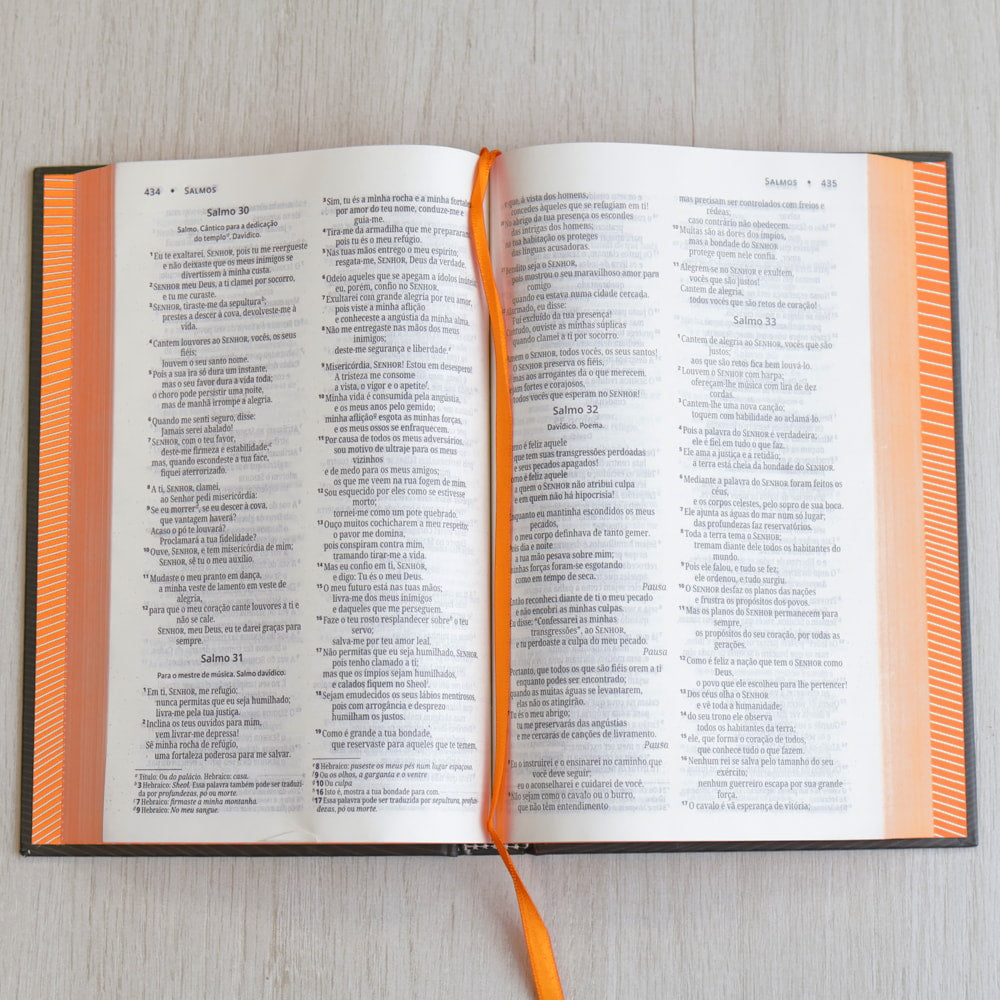 434 • SALMOS
Salmo 30
Salmo. Cântico para a dedicação
do temploª. Davídico.
¹Eu te exaltarei, SENHOR, pois tu me reergueste
e não deixaste que os meus inimigos se
divertissem à minha custa.
²SENHOR meu Deus, a ti clamei por socorro,
e tu me curaste.
³SENHOR, tiraste-me da sepulturaᵇ;
prestes a descer à cova, devolveste-me à
vida.
⁴Cantem louvores ao SENHOR, vocês, os seus
fiéis;
louvem o seu santo nome.
⁵Pois a sua ira só dura um instante,
mas o seu favor dura a vida toda;
o choro pode persistir uma noite,
mas de manhã irrompe a alegria.
⁶Quando me senti seguro, disse:
Jamais serei abalado!
⁷SENHOR, com o teu favor,
deste-me firmeza e estabilidade;ᶜ
mas, quando escondeste a tua face,
fiquei aterrorizado.
⁸A ti, SENHOR, clamei,
ao Senhor pedi misericórdia:
⁹Se eu morrerᵈ, se eu descer à cova,
que vantagem haverá?
Acaso o pó te louvará?
Proclamará a tua fidelidade?
¹⁰Ouve, SENHOR, e tem misericórdia de mim;
SENHOR, sê tu o meu auxílio.
¹¹Mudaste o meu pranto em dança,
a minha veste de lamento em veste de
alegria,
¹²para que o meu coração cante louvores a ti e
não se cale.
SENHOR, meu Deus, eu te darei graças para
sempre.
Salmo 31
Para o mestre de música. Salmo davídico.
¹Em ti, SENHOR, me refugio;
nunca permitas que eu seja humilhado;
livra-me pela tua justiça.
²Inclina os teus ouvidos para mim,
vem livrar-me depressa!
Sê minha rocha de refúgio,
uma fortaleza poderosa para me salvar.
ª Título: Ou do palácio. Hebraico: casa.
ᵇ 3 Hebraico: Sheol. Essa palavra também pode ser traduzi-
da por profundezas, pó ou morte.
ᶜ 7 Hebraico: firmaste a minha montanha.
ᵈ 9 Hebraico: No meu sangue.
³Sim, tu és a minha rocha e a minha fortaleza
por amor do teu nome, conduze-me e
guia-me.
⁴Tira-me da armadilha que me prepararam
pois tu és o meu refúgio.
⁵Nas tuas mãos entrego o meu espírito;
resgata-me, SENHOR, Deus da verdade.
⁶Odeio aqueles que se apegam a ídolos inúteis
eu, porém, confio no SENHOR.
⁷Exultarei com grande alegria por teu amor,
pois viste a minha aflição
e conheceste a angústia da minha alma.
⁸Não me entregaste nas mãos dos meus
inimigos;
deste-me segurança e liberdade.ᵉ
⁹Misericórdia, SENHOR! Estou em desespero!
A tristeza me consome
a vista, o vigor e o apetiteᶠ.
¹⁰Minha vida é consumida pela angústia,
e os meus anos pelo gemido;
minha afliçãoᵍ esgota as minhas forças,
e os meus ossos se enfraquecem.
¹¹Por causa de todos os meus adversários,
sou motivo de ultraje para os meus
vizinhos
e de medo para os meus amigos;
os que me veem na rua fogem de mim.
¹²Sou esquecido por eles como se estivesse
morto;
tornei-me como um pote quebrado.
¹³Ouço muitos cochicharem a meu respeito;
o pavor me domina,
pois conspiram contra mim,
tramando tirar-me a vida.
¹⁴Mas eu confio em ti, SENHOR,
e digo: Tu és o meu Deus.
¹⁵O meu futuro está nas tuas mãos;
livra-me dos meus inimigos
e daqueles que me perseguem.
¹⁶Faze o teu rosto resplandecer sobreʰ o teu
servo;
salva-me por teu amor leal.
¹⁷Não permitas que eu seja humilhado, SENHOR,
pois tenho clamado a ti;
mas que os ímpios sejam humilhados,
e calados fiquem no Sheolⁱ.
¹⁸Sejam emudecidos os seus lábios mentirosos,
pois com arrogância e desprezo
humilham os justos.
¹⁹Como é grande a tua bondade,
que reservaste para aqueles que te temem,
ᵉ8 Hebraico: puseste os meus pés num lugar espaçoso.
ᶠ9 Ou os olhos, a garganta e o ventre
ᵍ10 Ou culpa
ʰ 16 Isto é, mostra a tua bondade para com.
ⁱ 17 Essa palavra pode ser traduzida por sepultura, profun-
dezas, pó ou morte.
SALMOS • 435
e que, à vista dos homens,
concedes àqueles que se refugiam em ti!
No abrigo da tua presença os escondes
das intrigas dos homens;
na tua habitação os proteges
das línguas acusadoras.
Bendito seja o SENHOR,
pois mostrou o seu maravilhoso amor para
comigo
quando eu estava numa cidade cercada.
Alarmado, eu disse:
Fui excluído da tua presença!
Contudo, ouviste as minhas súplicas
quando clamei a ti por socorro.
Amem o SENHOR, todos vocês, os seus santos!
O SENHOR preserva os fiéis,
mas aos arrogantes dá o que merecem.
Sejam fortes e corajosos,
todos vocês que esperam no SENHOR!
Salmo 32
Davídico. Poema.
Como é feliz aquele
que tem suas transgressões perdoadas
e seus pecados apagados!
Como é feliz aquele
a quem o SENHOR não atribui culpa
e em quem não há hipocrisia!
Enquanto eu mantinha escondidos os meus
pecados,
o meu corpo definhava de tanto gemer.
Pois dia e noite
a tua mão pesava sobre mim;
minhas forças foram-se esgotando
como em tempo de seca.
Pausa
Então reconheci diante de ti o meu pecado
e não encobri as minhas culpas.
Eu disse: “Confessarei as minhas
transgressões”, ao SENHOR,
e tu perdoaste a culpa do meu pecado.
Pausa
Portanto, que todos os que são fiéis orem a ti
enquanto podes ser encontrado;
quando as muitas águas se levantarem,
elas não os atingirão.
⁷Tu és o meu abrigo;
tu me preservarás das angústias
e me cercarás de canções de livramento.
Pausa
⁸Eu o instruirei e o ensinarei no caminho que
você deve seguir;
eu o aconselharei e cuidarei de você.
⁹Não sejam como o cavalo ou o burro,
que não têm entendimento
mas precisam ser controlados com freios e
rédeas;
caso contrário não obedecem.
¹⁰Muitas são as dores dos ímpios,
mas a bondade do SENHOR
protege quem nele confia.
¹¹Alegrem-se no SENHOR e exultem,
vocês que são justos!
Cantem de alegria,
todos vocês que são retos de coração!
Salmo 33
¹Cantem de alegria ao SENHOR, vocês que são
justos;
aos que são retos fica bem louvá-lo.
²Louvem o SENHOR com harpa;
ofereçam-lhe música com lira de dez
cordas.
³Cantem-lhe uma nova canção;
toquem com habilidade ao aclamá-lo.
⁴Pois a palavra do SENHOR é verdadeira;
ele é fiel em tudo o que faz.
⁵Ele ama a justiça e a retidão;
a terra está cheia da bondade do SENHOR.
⁶Mediante a palavra do SENHOR foram feitos os
céus,
e os corpos celestes, pelo sopro de sua boca.
⁷Ele ajunta as águas do mar num só lugar;
das profundezas faz reservatórios.
⁸Toda a terra tema o SENHOR;
tremam diante dele todos os habitantes do
mundo.
⁹Pois ele falou, e tudo se fez;
ele ordenou, e tudo surgiu.
¹⁰O SENHOR desfaz os planos das nações
e frustra os propósitos dos povos.
¹¹Mas os planos do SENHOR permanecem para
sempre,
os propósitos do seu coração, por todas as
gerações.
¹²Como é feliz a nação que tem o SENHOR como
Deus,
o povo que ele escolheu para lhe pertencer!
¹³Dos céus olha o SENHOR
e vê toda a humanidade;
¹⁴do seu trono ele observa
todos os habitantes da terra;
¹⁵ele, que forma o coração de todos,
que conhece tudo o que fazem.
¹⁶Nenhum rei se salva pelo tamanho do seu
exército;
nenhum guerreiro escapa por sua grande
força.
¹⁷O cavalo é vã esperança de vitória;